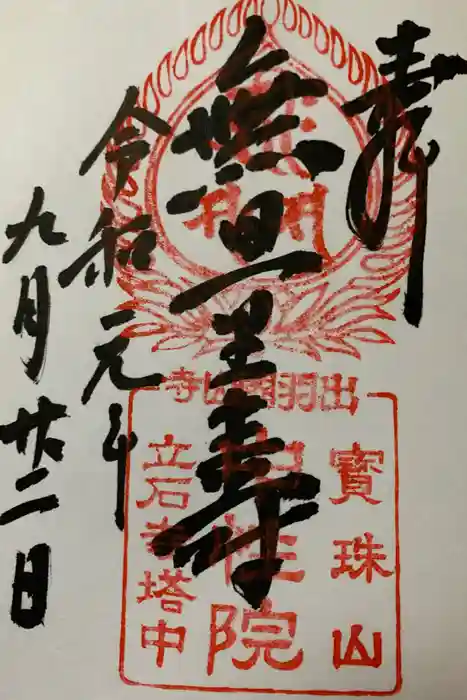 奉拝
無量寿
令和元年
九月廿二日
出羽國山寺
寶珠山
中性院
立石寺塔中